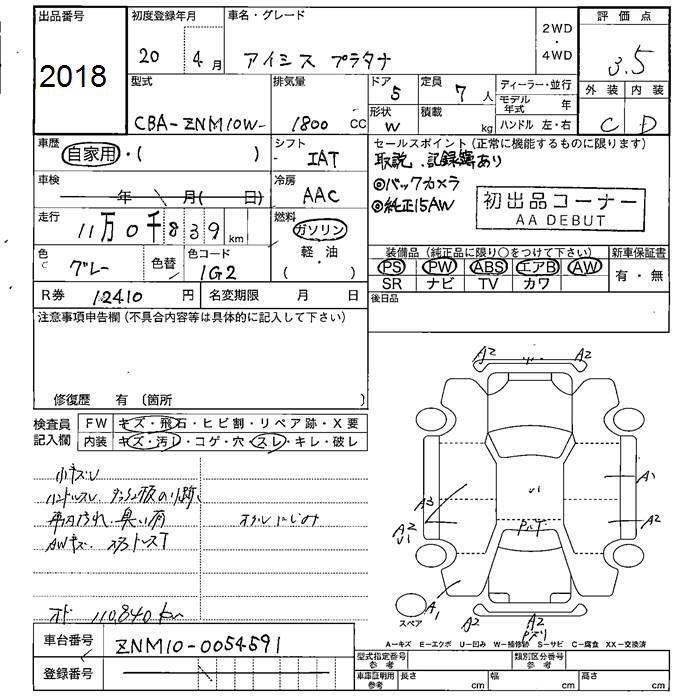 出品番号
2018
初度登録年月
20 4月
車名・グレード
アイシス プラタナ
2WD
・
4WD
評価点
3.5
外装 内装
C D
型式
CBA-ZNM10W-
排気量
1800 CC
ドア 5
形状 W
定員 7 人
積載 kg
ディーラー・並行
モデル年式 年
ハンドル 左・右
車歴
自家用・( )
シフト
IAT
セールスポイント(正常に機能するものに限ります)
取説、記録簿あり
◎バックカメラ
◎純正15AW
初出品コーナー
AA DEBUT
車検
年 月( 日)
冷房
AAC
走行
11万0千839km
燃料
ガソリン
軽・油
( )
色
グレー
色替
色コード
1G2
装備品(純正品に限り○をつけて下さい)
PS PW ABS エアB AW
SR ナビ TV カワ
新車保証書
有・無
R券 12410 円
名変期限 月 日
後日品
注意事項申告欄(不具合内容等は具体的に記入して下さい)
修復歴 有 (箇所 )
検査員記入欄
FW キズ・飛石・ヒビ割・リペア跡・X要
内装 キズ・汚レ・コゲ・穴・スレ・キレ・破レ
小キズU
車内汚れ、臭い有
オイルにじみ
AWキズ
オド 110,840 km
車台番号 ZNM10-0054591
登録番号
A2 A2
A1
A3
U1
A2
U1
A2
A1
A2
A2
スペア
A−キズ E−エクボ U−凹み W−補修跡 S−サビ C−腐食 XX−交換済
型式指定番号 参考
類別区分番号 参考
車庫証明用 参考 長さ cm 幅 cm 高さ cm